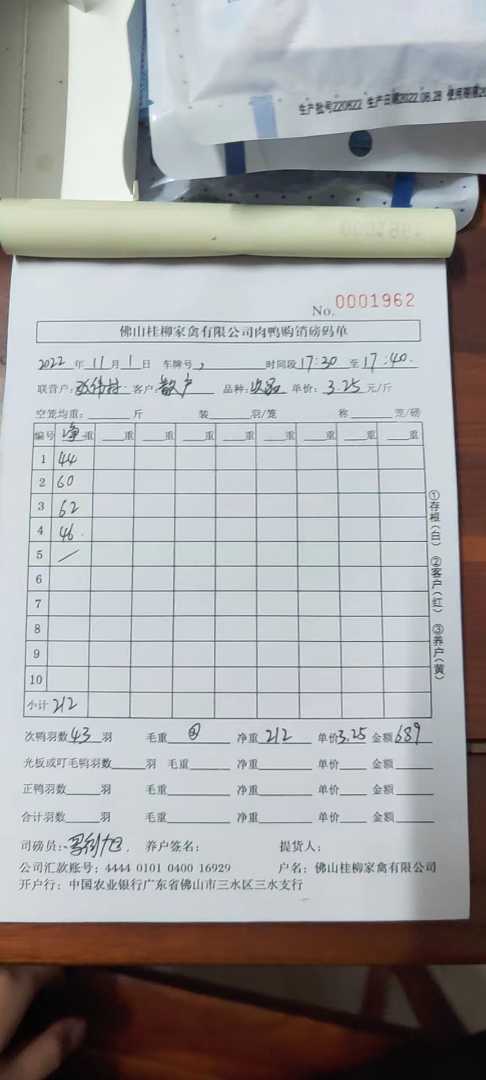 生产批号220822 生产日期2022.08.28 使用期限20
No. 0001962
佛山桂柳家禽有限公司肉鸭购销磅码单
2022年11月1日 车牌号 时间段17:30至17:40
联营户: 客户:散户 品种:次品 单价:3.25元/斤
空笼均重:斤 装羽/笼 称笼/磅
编号 净重 重 重 重 重 重 重 重 重
1 44
2 60
3 62
4 46
5 /
6
7
8
9
10
小计 212
①存根(白) ②客户(红) ③养户(黄)
次鸭羽数43羽 毛重④ 净重212 单价3.25 金额689
光板或叮毛鸭羽数羽 毛重 净重 单价 金额
正鸭羽数羽 毛重 净重 单价 金额
合计羽数羽 毛重 净重 单价 金额
司磅员: 养户签名: 提货人:
公司汇款账号:4444 0101 0400 16929 户名:佛山桂柳家禽有限公司
开户行:中国农业银行广东省佛山市三水区三水支行